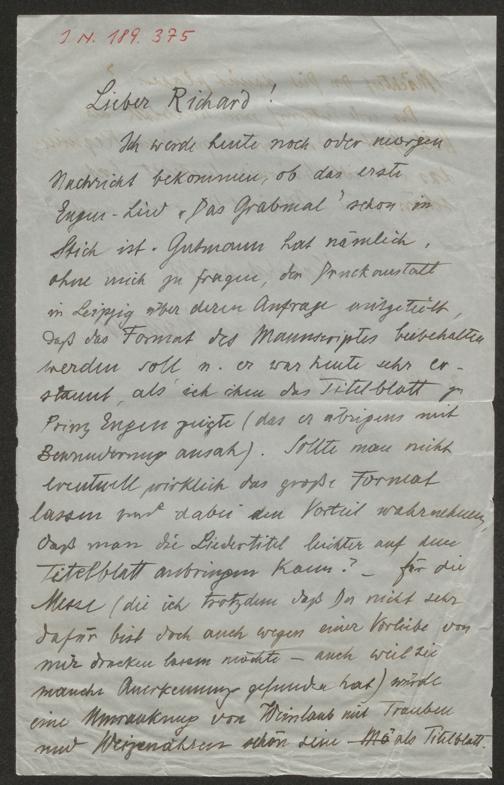 I N. 189.375
Lieber Richard!
Ich werde heute noch oder morgen
Nachricht bekommen, ob das erste
Eugen-Lied „Das Grabmal" schon in
Stich ist. Gutmann hat nämlich,
ohne mich zu fragen, der Druckanstalt
in Leipzig über deren Anfrage mitgeteilt,
daß das Format des Manuscriptes beibehalten
werden soll u. er war heute sehr er-
staunt, als ich ihm das Titelblatt zu
Prinz Eugen zeigte (das er übrigens mit
Bewunderung ansah). Sollte man nicht
eventuell wirklich das große Format
lassen und dabei den Vorteil wahrnehmen,
daß man die Liedertitel leichter auf dem
Titelblatt anbringen kann? – Für die
Messe (die ich trotzdem daß Du nicht sehr
dafür bist doch auch wegen einer Vorliebe von
mir drucken lassen möchte – auch weil sie
manche Anerkennung gefunden hat) würde
eine Umrankung von Weinlaub mit Trauben
und Weizenähren schön sein als Titelblatt.